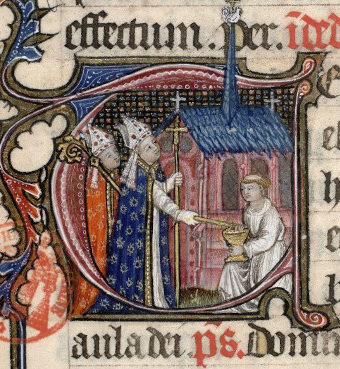 effectum. Per. īded
aula dei. p̄s. Domi